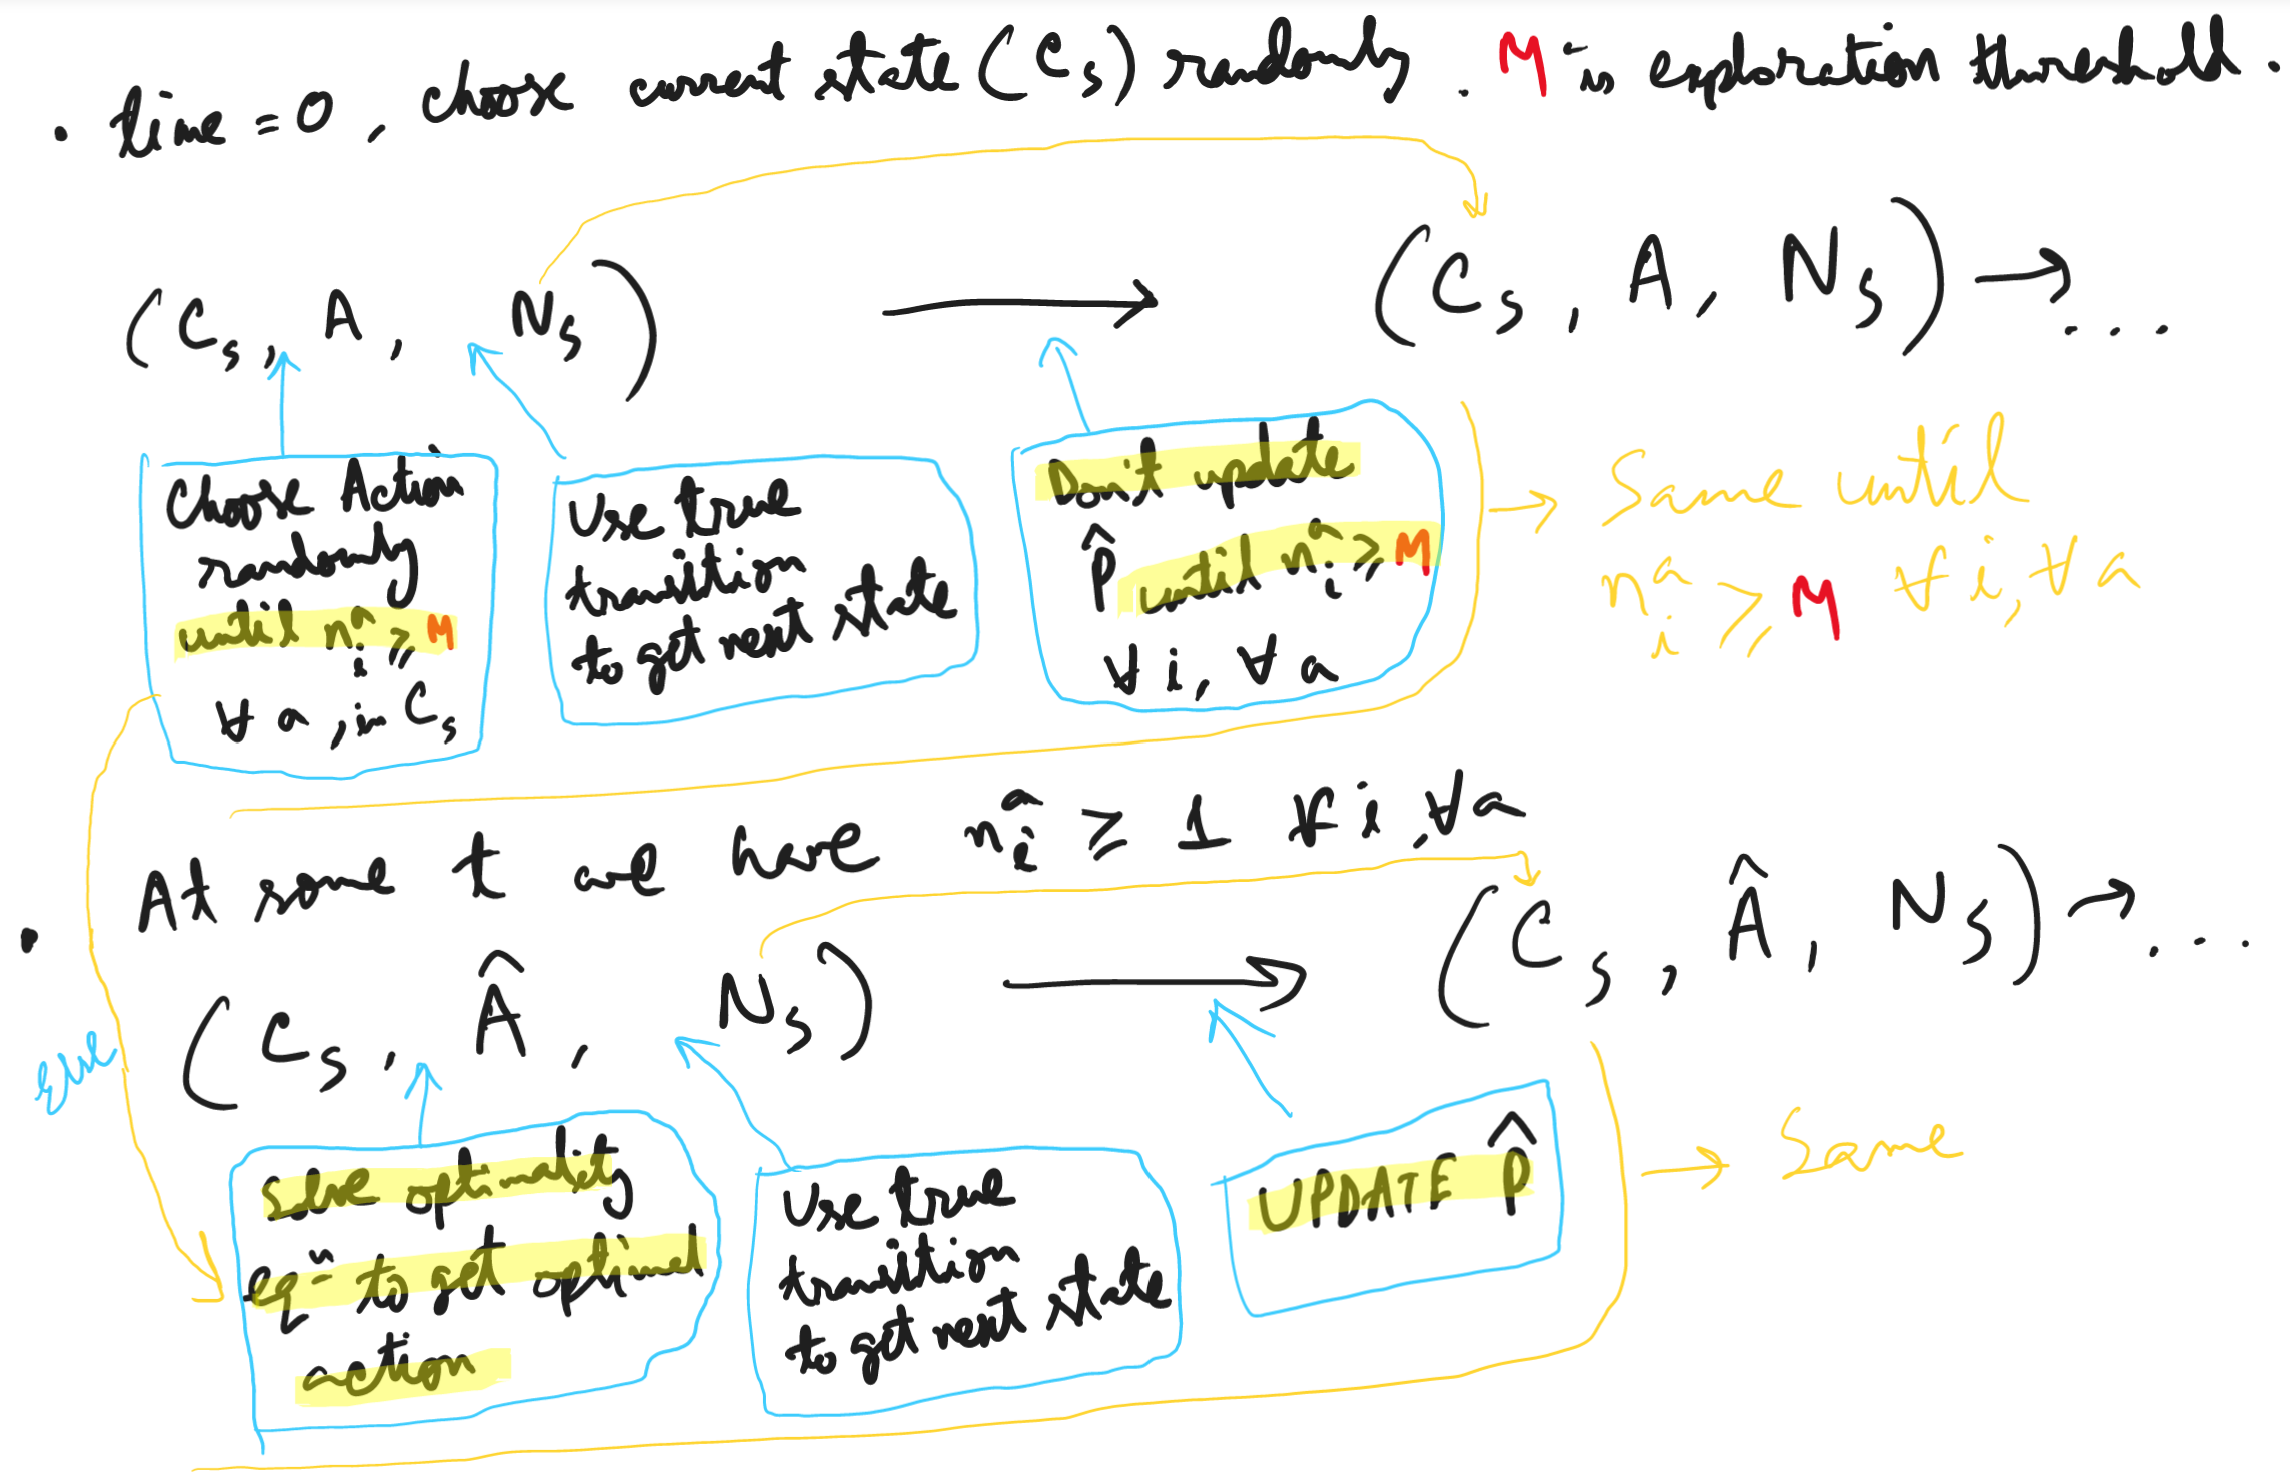 • time = 0, choose current state (Cs) randomly. M is exploration threshold.
(Cs, A, Ns) → (Cs, A, Ns) → ...
Choose Action
randomly
until nᵢᵃ ≥ M
∀ a, in Cs
Use true
transition
to get next state
Don't update
P̂ until nᵢᵃ ≥ M
∀ i, ∀ a
→ Same until
nᵢᵃ ≥ M ∀ i, ∀ a
• At some t we have nᵢᵃ ≥ 1 ∀ i, ∀ a
(Cs, Â, Ns) → (Cs, Â, Ns) → ...
else
solve optimality
eqⁿ to get optimal
action
Use true
transition
to get next state
UPDATE P̂
→ Same